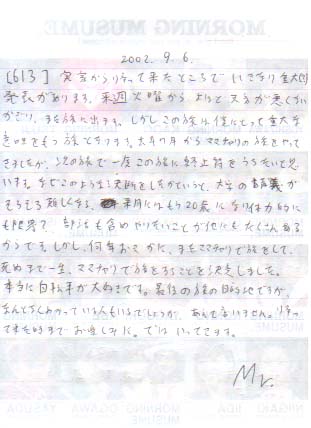 MORNING MUSUME
2002. 9. 6.
[613] 実家から帰って来たところでいきなり重大
発表があります。来週火曜からちょっと天気が悪くないか
ぎり、また旅に出ます。しかしこの旅は僕にとって重大な
意味をもつ旅となります。ママチャリの旅をやって
きましたが、次の旅で一度この旅に終止符をうちたいと思
います。なぜこのような決断をしたかというと、大学の講義が
そろそろ難しくなる、来月にはもう20歳になり体力的に
も限界で、部活も含めやりたいことが他にもたくさんある
からです。しかし、何年おきかに、またママチャリで旅をして、
死ぬまで一生、ママチャリで旅をすることを決定しました。
本当に自転車が大好きです。最後の旅の目的地ですが、
なんとなくわかっている人もいるでしょうが、あえて言いません。帰っ
て来る時までお楽しみに。ではいってきます。
Mr.
MUSUME
NIIGAKI IIDA MORNING OGAWA YASUDA
MUSUME